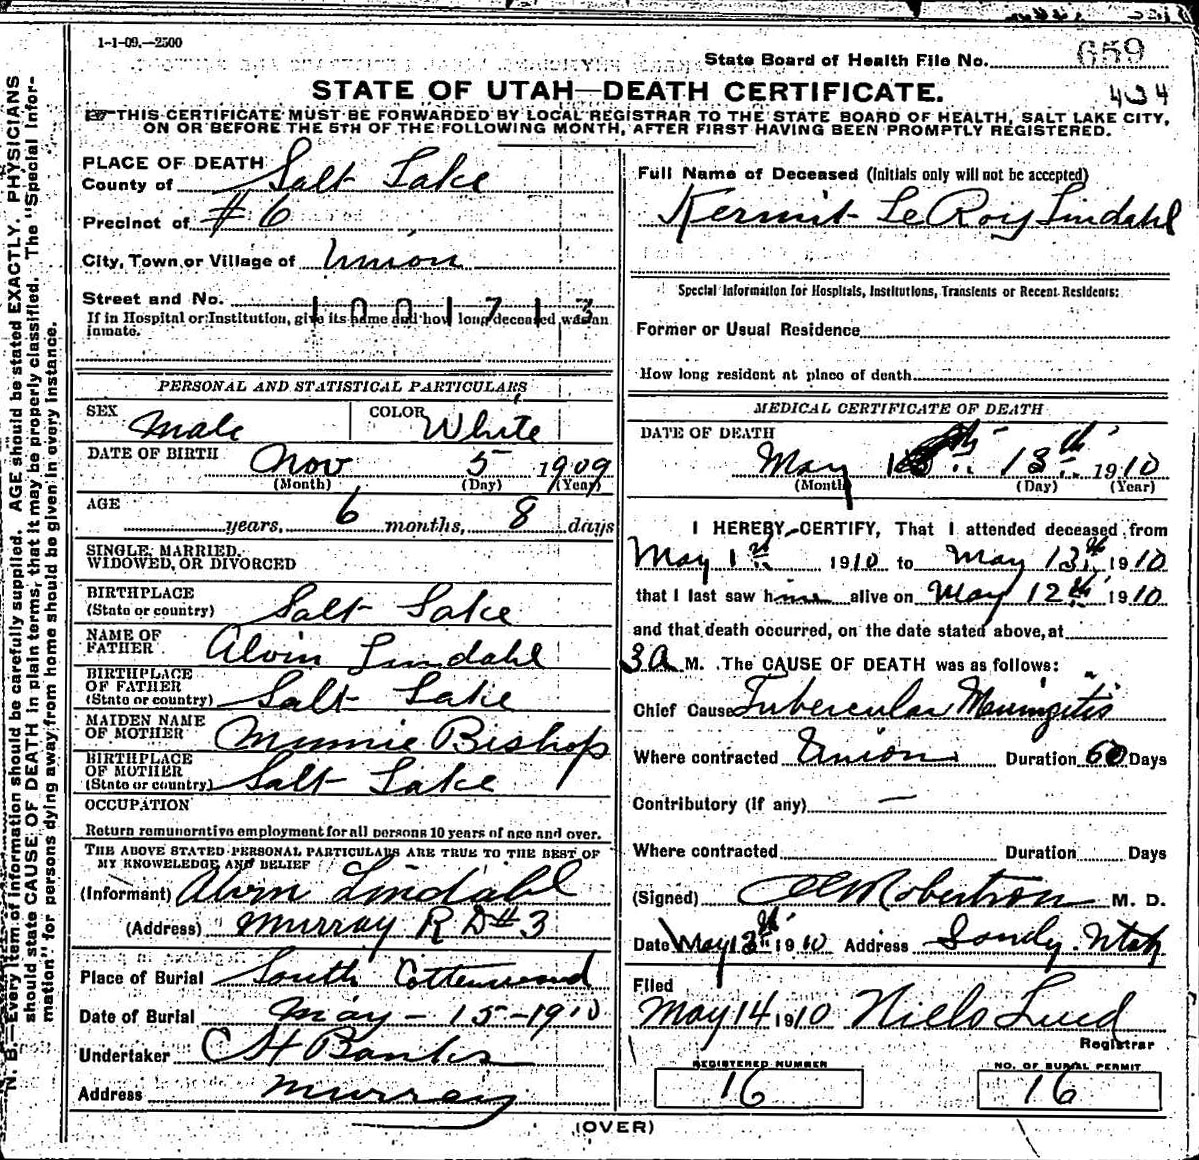 1-1-09.—2500
State Board of Health File No. 659
STATE OF UTAH—DEATH CERTIFICATE.
434
THIS CERTIFICATE MUST BE FORWARDED BY LOCAL REGISTRAR TO THE STATE BOARD OF HEALTH, SALT LAKE CITY,
ON OR BEFORE THE 5TH OF THE FOLLOWING MONTH, AFTER FIRST HAVING BEEN PROMPTLY REGISTERED.
N. B.—Every item of information should be carefully supplied. AGE should be stated EXACTLY. PHYSICIANS
should state CAUSE OF DEATH in plain terms, that it may be properly classified. The "Special Infor-
mation" for persons dying away from home should be given in every instance.
PLACE OF DEATH
County of Salt Lake
Precinct of #6
City, Town or Village of Union
Street and No.
1001713
If in Hospital or Institution, give its name and how long deceased was an
inmate.
PERSONAL AND STATISTICAL PARTICULARS
SEX Male COLOR White
DATE OF BIRTH Nov 5 1909
(Month) (Day) (Year)
AGE years, 6 months, 8 days
SINGLE, MARRIED,
WIDOWED, OR DIVORCED
BIRTHPLACE
(State or country) Salt Lake
NAME OF
FATHER Alvin Lindahl
BIRTHPLACE
OF FATHER
(State or country) Salt Lake
MAIDEN NAME
OF MOTHER Minnie Bishop
BIRTHPLACE
OF MOTHER
(State or country) Salt Lake
OCCUPATION
Return remunerative employment for all persons 10 years of age and over.
THE ABOVE STATED PERSONAL PARTICULARS ARE TRUE TO THE BEST OF
MY KNOWLEDGE AND BELIEF
(Informant) Alvin Lindahl
(Address) Murray R D #3
Place of Burial South Cottonwood
Date of Burial May - 15 - 1910
Undertaker C H Banks
Address Murray
Full Name of Deceased (Initials only will not be accepted)
Kermit LeRoy Lindahl
Special Information for Hospitals, Institutions, Transients or Recent Residents:
Former or Usual Residence
How long resident at place of death
MEDICAL CERTIFICATE OF DEATH
DATE OF DEATH
May 13th 1910
(Month) (Day) (Year)
I HEREBY CERTIFY, That I attended deceased from
May 1st 1910 to May 13th 1910
that I last saw him alive on May 12th 1910
and that death occurred, on the date stated above, at
3 A M. The CAUSE OF DEATH was as follows:
Chief Cause Tubercular Meningitis
Where contracted Union Duration 60 Days
Contributory (if any) —
Where contracted Duration Days
(Signed) Robertson M. D.
Date May 13th 1910 Address Sandy Utah
Filed
May 14 1910 Niels Lind
Registrar
REGISTERED NUMBER
16
NO. OF BURIAL PERMIT
16
(OVER)